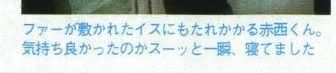 ファーが敷かれたイスにもたれかかる赤西くん。
気持ち良かったのかスーッと一瞬、寝てました